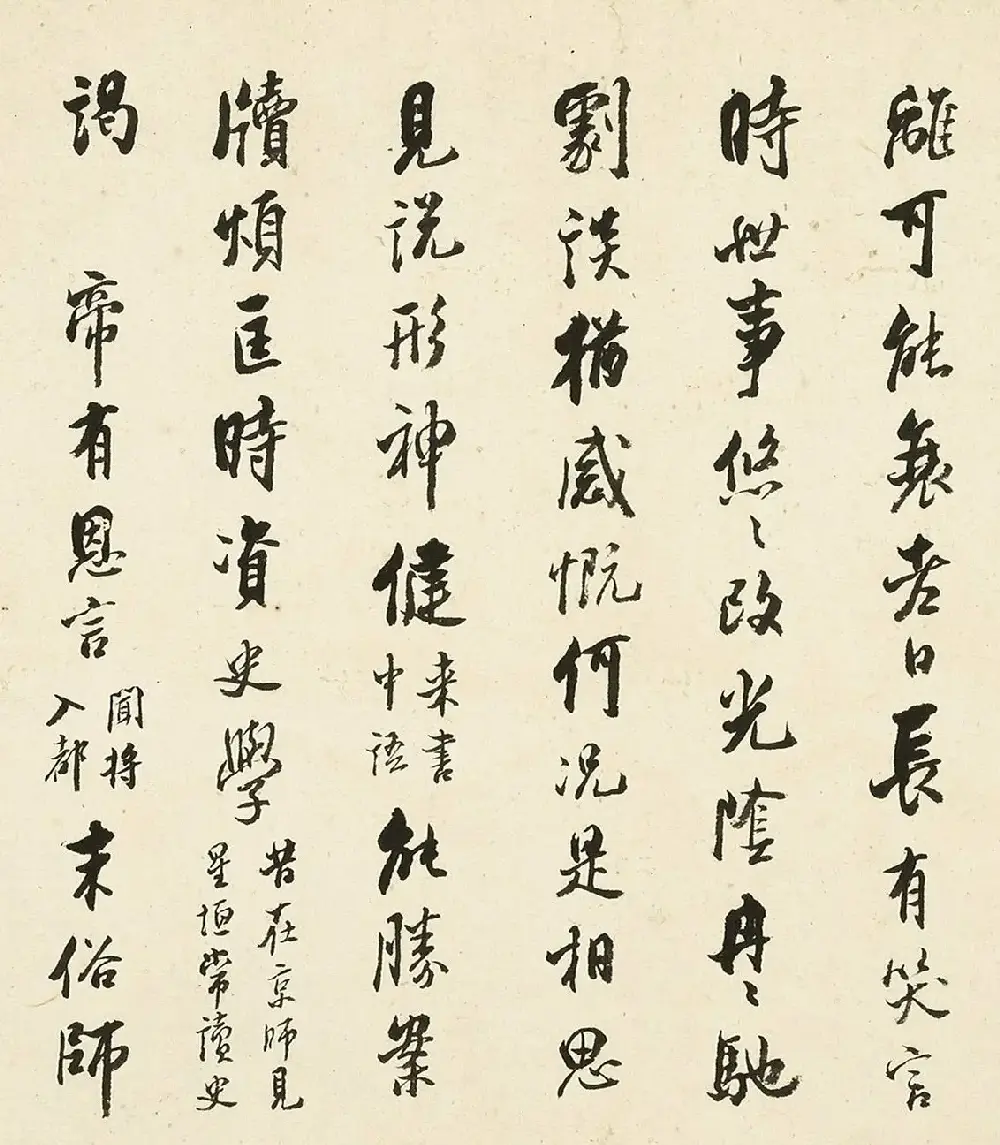 離可能衰老日長有笑言
時世事悠〻改光陰冉〻馳
劇談猶感慨何況是相思
見説形神健来書中語能勝案
牘煩匡時資史學昔在京師見星垣常讀史
謁帝有恩言聞將入都末俗師